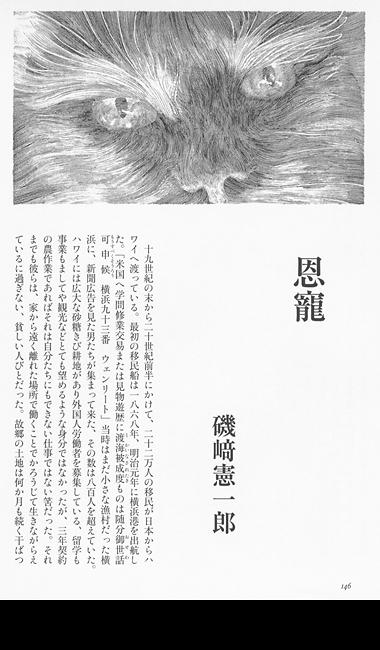 恩寵
磯﨑憲一郎
十九世紀の末から二十世紀前半にかけて、二十二万人の移民が日本からハ
ワイへ渡っている。最初の移民船は一八六八年、明治元年に横浜港を出航し
た。「米国へ学問修業交易または見物遊歴に渡海被成度ものは随分御世話
可申候 横浜九十三番 ウェンリート」当時はまだ小さな漁村だった横
浜に、新聞広告を見た男たちが集まって来た、その数は八百人を超えていた。
ハワイには広大な砂糖きび耕地があり外国人労働者を募集している、留学も
事業もましてや観光などとても望めるような身分ではなかったが、三年契約
の農作業であればそれは自分たちにもできない仕事ではない筈だった。それ
までも彼らは、家から遠く離れた場所で働くことでかろうじて生きながらえ
ているに過ぎない、貧しい人びとだった。故郷の土地は何か月も続く干ばつ
146